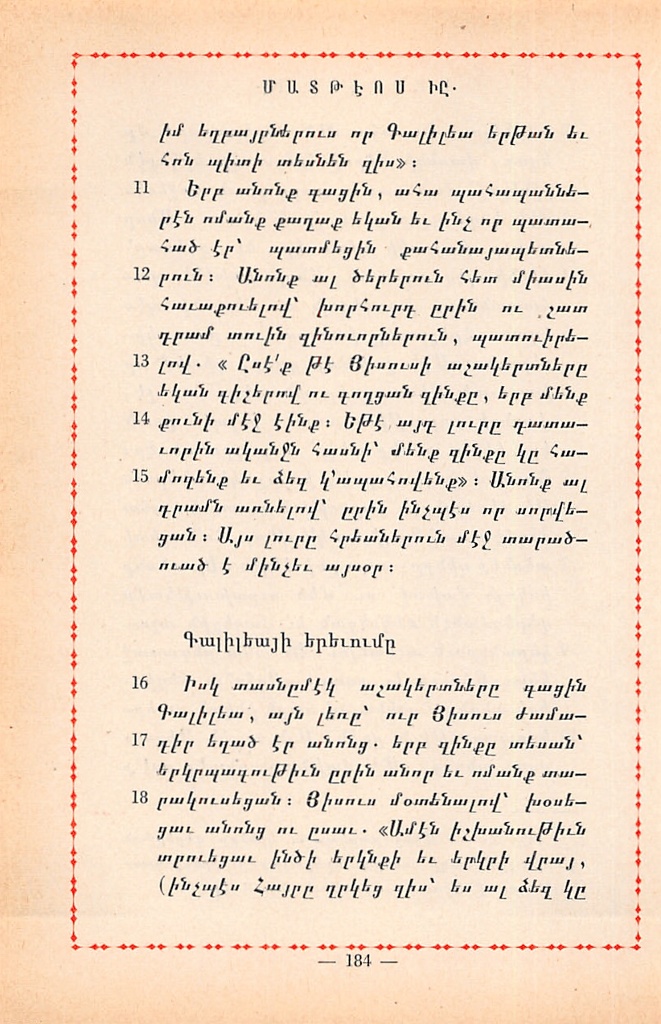 ՄԱՏԹԷՈՍ ԻԸ.
իմ եղբայրներուս որ Գալիլեա երթան եւ
հոն պիտի տեսնեն զիս»։
11 Երբ անոնք գացին, ահա պահապաննե–
րէն ոմանք քաղաք եկան եւ ինչ որ պատա–
հած էր՝ պատմեցին քահանայապետնե–
12 րուն։ Անոնք ալ ծերերուն հետ միասին
հաւաքուելով՝ խորհուրդ ըրին ու շատ
դրամ տուին զինուորներուն, պատուիրե–
13 լով. «Ըսէ՛ք թէ Յիսուսի աշակերտները
եկան գիշերով ու գողցան զինքը, երբ մենք
14 քունի մէջ էինք։ Եթէ այդ լուրը դատա–
ւորին ականջն հասնի՝ մենք զինքը կը հա–
15 մոզենք եւ ձեզ կ՚ապահովենք»։ Անոնք ալ
դրամն առնելով՝ ըրին ինչպէս որ սորվե–
ցան։ Այս լուրը հրեաներուն մէջ տարած–
ուած է մինչեւ այսօր։
Գալիլեայի երեւումը
16 Իսկ տասնըմէկ աշակերտները գացին
Գալիլեա, այն լեռը՝ ուր Յիսուս ժամա–
17 դիր եղած էր անոնց. երբ զինքը տեսան՝
երկրպագութիւն ըրին անոր եւ ոմանք տա–
18 րակուսեցան։ Յիսուս մօտենալով՝ խօսե–
ցաւ անոնց ու ըսաւ. «Ամէն իշխանութիւն
տրուեցաւ ինծի երկնքի եւ երկրի վրայ,
(ինչպէս Հայրը ղրկեց զիս՝ ես ալ ձեզ կը
— 184 —